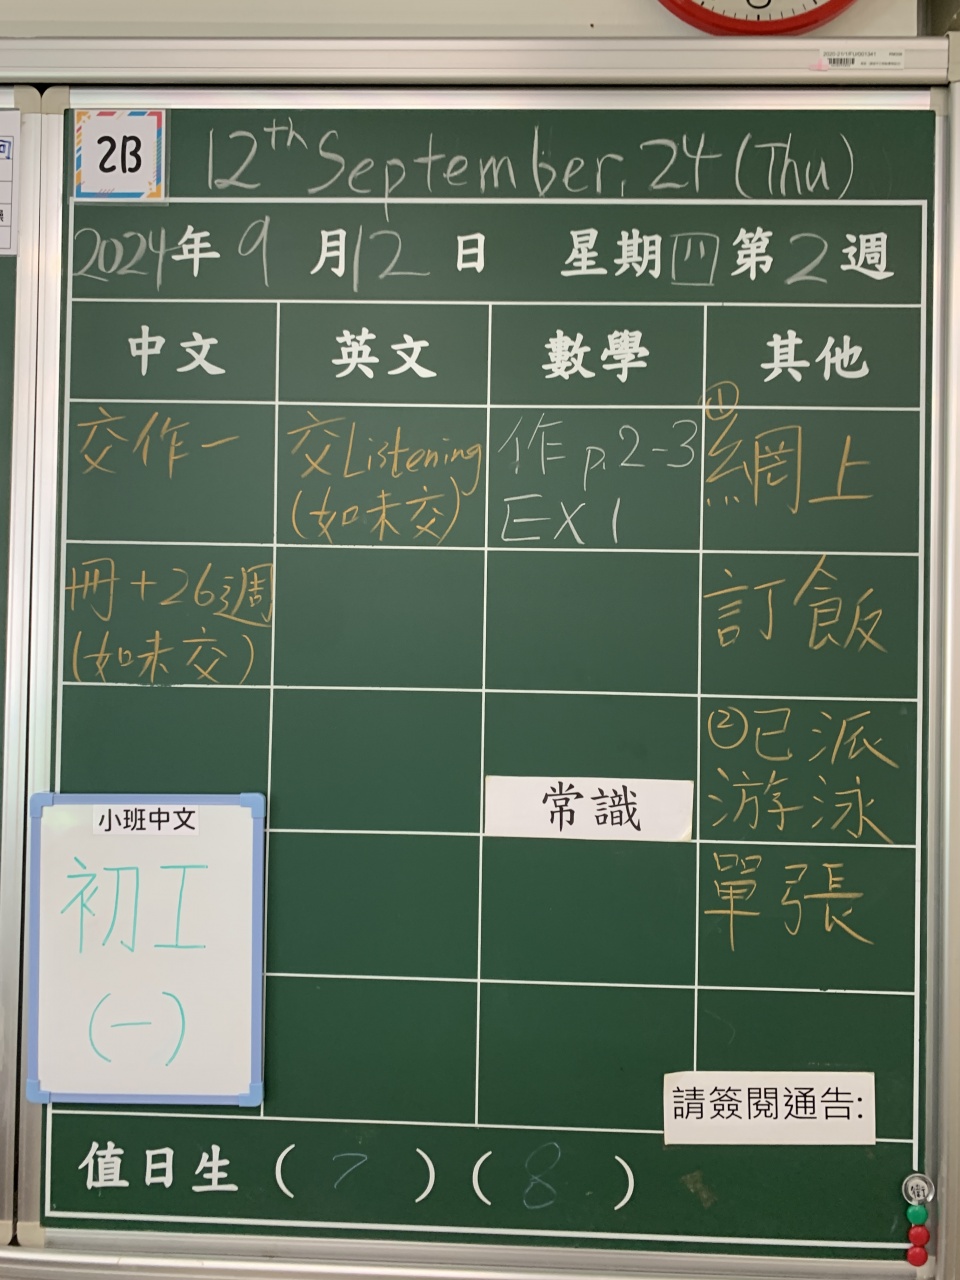 2B
12th September, 24 (Thu)
2024年9月12日 星期四 第2週
中文 英文 數學 其他
交作一
冊+26週
(如未交)
交Listening
(如未交)
作 p.2-3
EX 1
①
網上
訂飯
②已派
游泳
單張
常識
小班中文
初工
(一)
請簽閱通告:
值日生 ( 7 ) ( 8 )